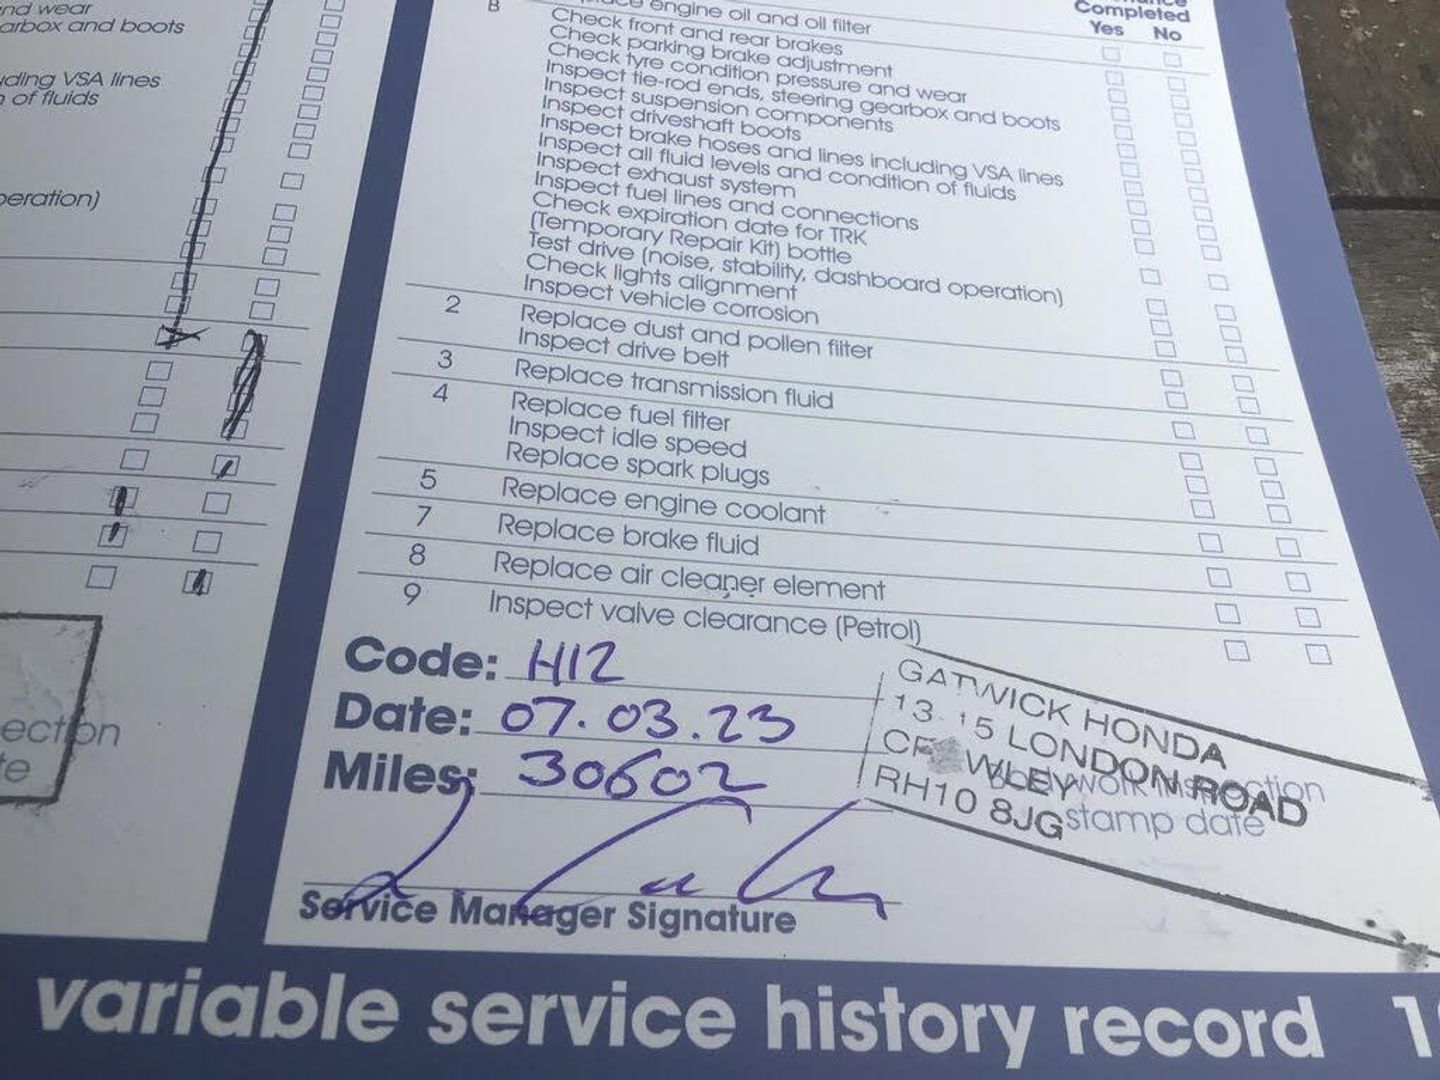 nd wear
arbox and boots
uding VSA lines
n of fluids
peration)
ection
te
Completed
Yes No
B
engine oil and oil filter
Check front and rear brakes
Check parking brake adjustment
Check tyre condition pressure and wear
Inspect tie-rod ends, steering gearbox and boots
Inspect suspension components
Inspect driveshaft boots
Inspect brake hoses and lines including VSA lines
Inspect all fluid levels and condition of fluids
Inspect exhaust system
Inspect fuel lines and connections
Check expiration date for TRK
(Temporary Repair Kit) bottle
Test drive (noise, stability, dashboard operation)
Check lights alignment
Inspect vehicle corrosion
2 Replace dust and pollen filter
Inspect drive belt
3 Replace transmission fluid
4 Replace fuel filter
Inspect idle speed
Replace spark plugs
5 Replace engine coolant
7 Replace brake fluid
8 Replace air cleaner element
9 Inspect valve clearance (Petrol)
Code: H12
Date: 07.03.23
Miles: 30602
Service Manager Signature
GATWICK HONDA
13-15 LONDON ROAD
CRAWLEY
RH10 8JG
stamp date
variable service history record